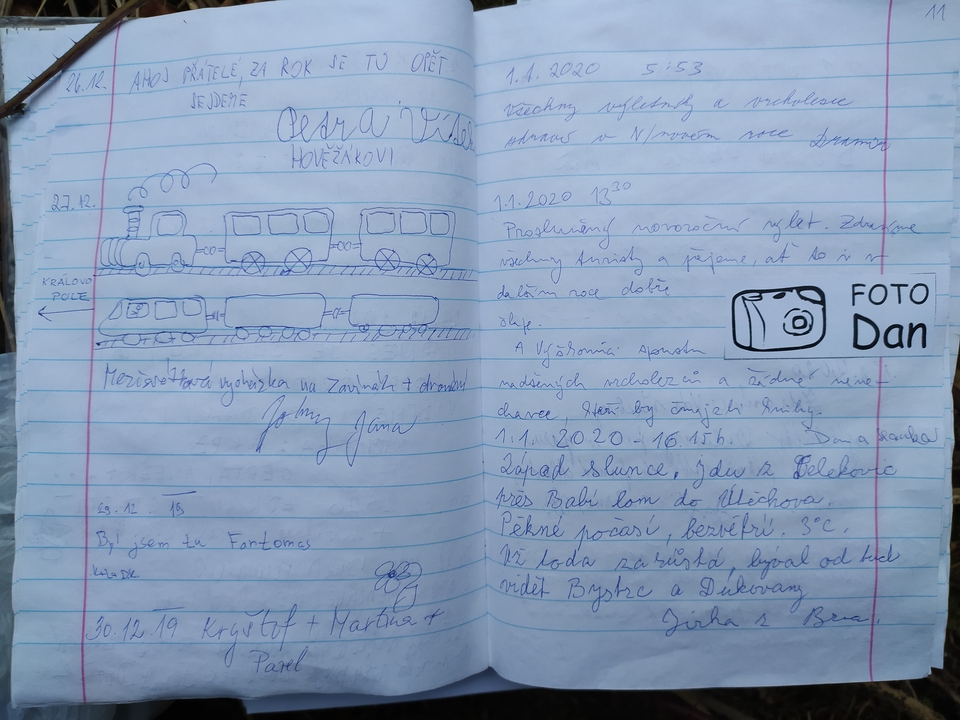 26.12. AHOJ PŘÁTELÉ, ZA ROK SE TU OPĚT
SEJDEME
Petr A
HOVĚŽÁKOVI
27.12.
KRÁLOVO
POLE
vycházka na +
Johny Jana
29.12. 19
Byl jsem tu Fantomas
30.12.19 Kryštof + Martina +
Pavel
11
1.1.2020 5:53
všechny výletníky a vrcholosce
zdraví v N/novém roce
1.1.2020 13 30
Prosluněný novoroční výlet. Zdravíme
všechny turisty a přejeme, ať to i v
dalším roce dobře
FOTO
Dan
A
nadšených vrcholezců a žádné nene-
chavce, kteří by knihy.
1.1. 2020 - 16.15h. Dan a
Západ slunce, jdu z Lelekovic
přes Babí lom do Útěchova.
Pěkné počasí, bezvětří. 3°C.
Už to da zarůstá, býval od tud
vidět Bystrc a Dukovany
Jirka z Brna.